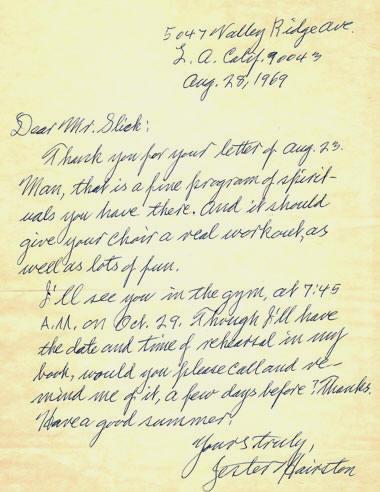 5047 Valley Ridge Ave.
L. A. Calif. 90043
Aug. 28, 1969
Dear Mr. Slick:
Thank you for your letter of Aug. 23.
Man, that is a fine program of spirit-
uals you have there. And it should
give your choir a real workout, as
well as lots of fun.
I'll see you in the gym, at 7:45
A.M. on Oct. 29. Though I'll have
the date and time of rehearsal in my
book, would you please call and re-
mind me of it, a few days before? Thanks.
Have a good summer.
Yours truly,
Jester Hairston